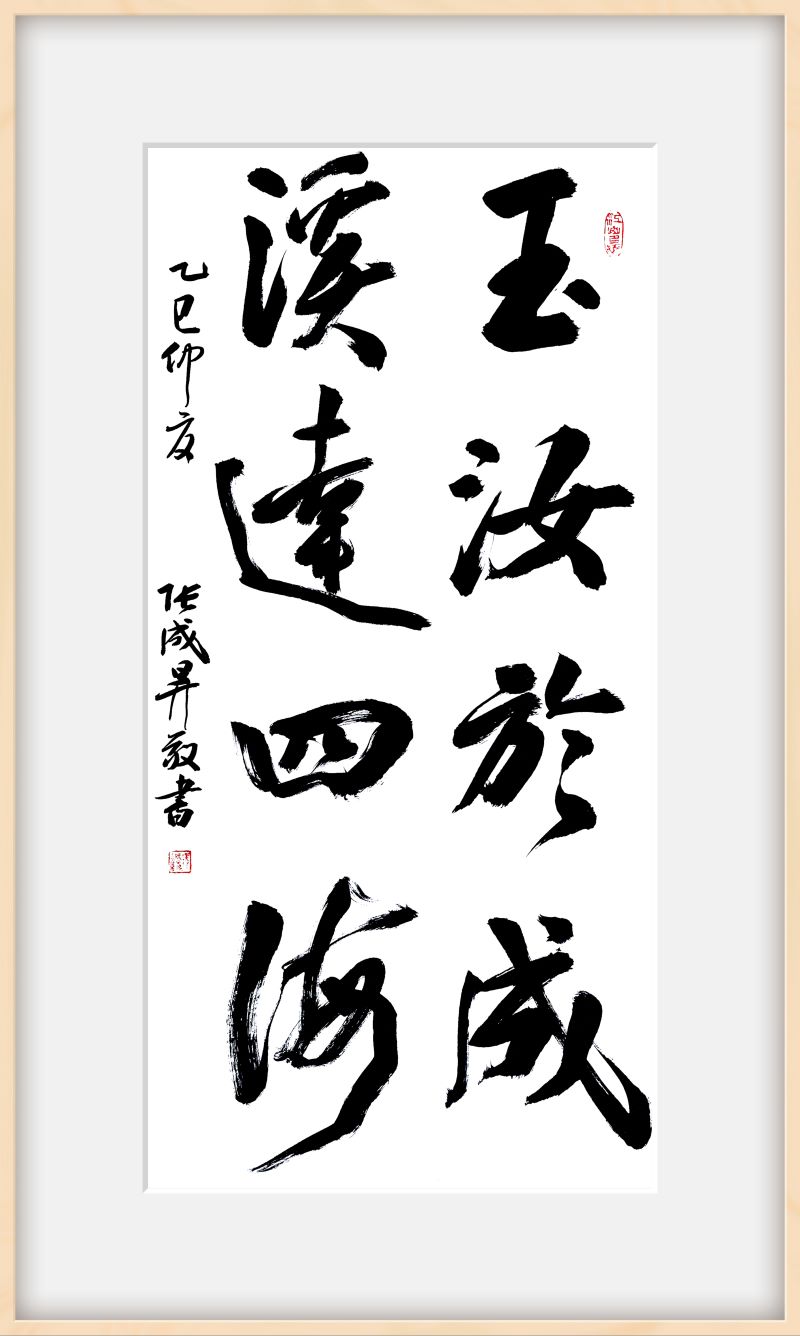 玉汝於成
溪達四海
乙巳仲夏
张成昇敬書